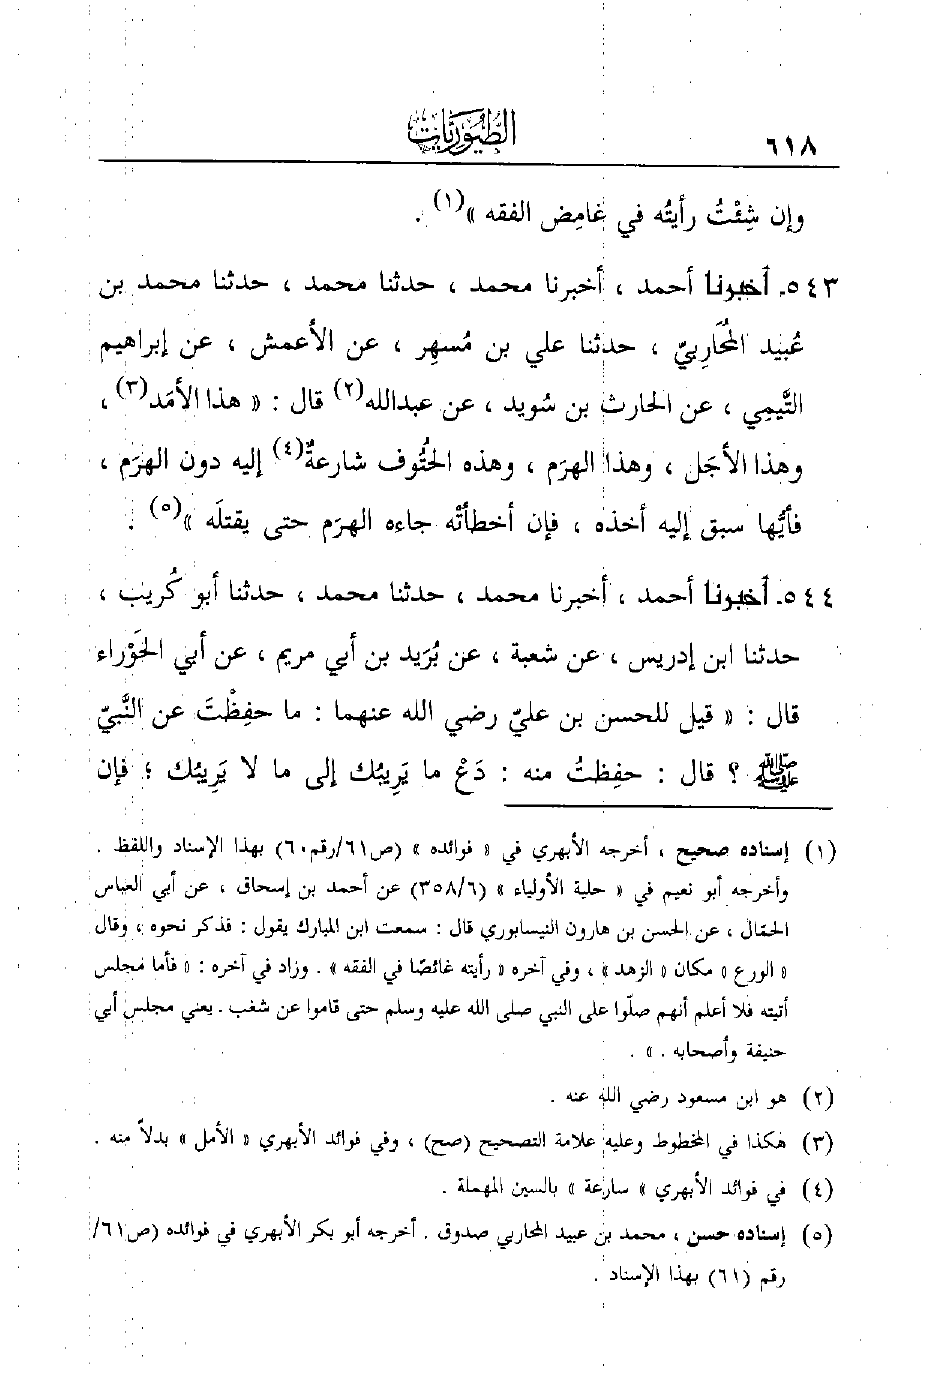 ٦١٨
الطيوريات
وإن شِئْتُ رأيتُه في غامِض الفقه »(١) .
٥٤٣. أخبرنا أحمد ، أخبرنا محمد ، حدثنا محمد ، حدثنا محمد بن
عُبيد المُحَارِبيّ ، حدثنا علي بن مُسهِر ، عن الأعمش ، عن إبراهيم
التَّيمِي ، عن الحارث بن سُويد ، عن عبدالله(٢) قال : « هذا الأمَد(٣) ،
وهذا الأجَل ، وهذا الهرَم ، وهذه الحتُوف شارعةٌ(٤) إليه دون الهرَم ،
فأيُّها سبق إليه أخذه ، فإن أخطأَتْه جاءه الهرَم حتى يقتلَه »(٥) .
٥٤٤. أخبرنا أحمد ، أخبرنا محمد ، حدثنا محمد ، حدثنا أبو كُريب ،
حدثنا ابن إدريس ، عن شعبة ، عن بُرَيد بن أبي مريم ، عن أبي الحَوْراء
قال : « قيل للحسن بن عليّ رضي الله عنهما : ما حفِظْتَ عن النَّبيّ
ﷺ ؟ قال : حفِظتُ منه : دَعْ ما يَرِيبُك إلى ما لا يَرِيبُك ؛ فإن
(١) إسناده صحيح ، أخرجه الأبهري في « فوائده » (ص٦١/رقم٦٠) بهذا الإسناد واللفظ .
وأخرجه أبو نعيم في « حلية الأولياء » (٣٥٨/٦) عن أحمد بن إسحاق ، عن أبي العباس
الحمّال ، عن الحسن بن هارون النيسابوري قال : سمعت ابن المبارك يقول : فذكر نحوه ، وقال
« الورع » مكان « الزهد » ، وفي آخره « رأيته غائصًا في الفقه » . وزاد في آخره : « فأما مجلس
أتيته فلا أعلم أنهم صلّوا على النبي صلى الله عليه وسلم حتى قاموا عن شغب . يعني مجلس أبي
حنيفة وأصحابه . » .
(٢) هو ابن مسعود رضي الله عنه .
(٣) هكذا في المخطوط وعليه علامة التصحيح (صح) ، وفي فوائد الأبهري « الأمل » بدلاً منه .
(٤) في فوائد الأبهري » سارعة » بالسين المهملة .
(٥) إسناده حسن ، محمد بن عبيد المحاربي صدوق . أخرجه أبو بكر الأبهري في فوائده (ص٦١/
رقم (٦١) بهذا الإسناد .